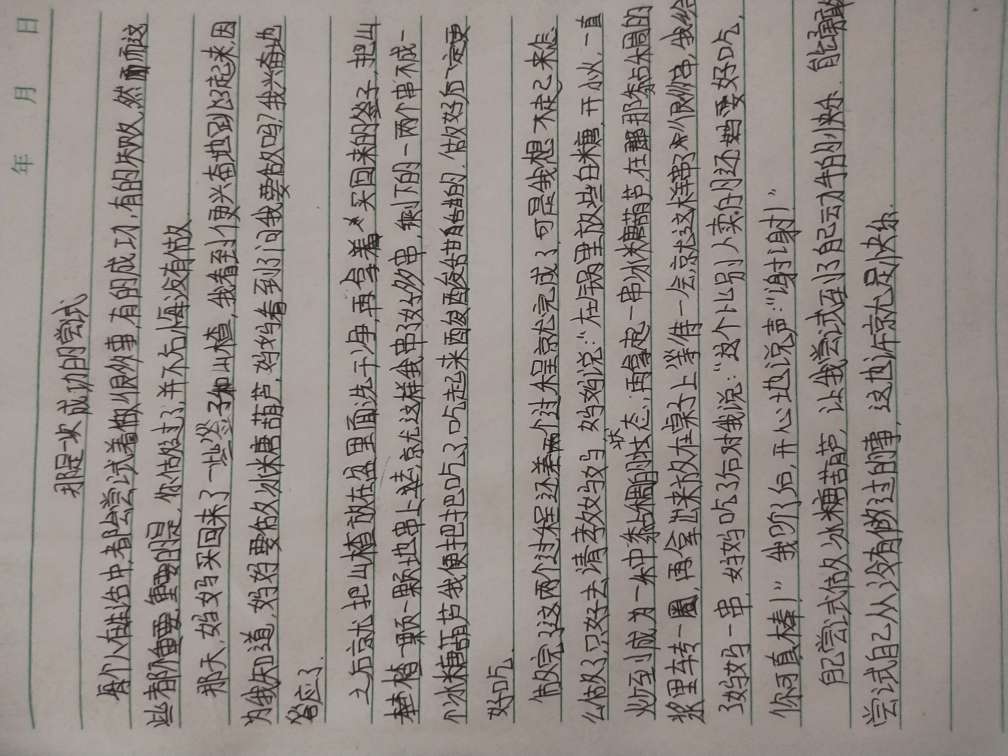 年 月 日
那是一次成功的尝试
每个人在生活中,都会尝试着做很多事,有的成功,有的失败,然而这
些都不重要,重要的是,你做过了,并不后悔没有做.
那天,妈妈买回来了一些签子和山楂,我看到便兴奋地跳起来,因
为我知道,妈妈要做冰唐葫芦,妈妈看到了问我要做吗?我兴奋地
答应了.
之后就把山楂放在盆里面洗干净,再拿着买回来的签子,把山
楂一颗一颗地串上去,就这样我串了好多串,剩下的一两个串不成一
个冰糖葫芦我便把把吃了,吃起来酸酸甜甜的.做好后一定更
好吃.
做完了这两个过程还差两个过程就完成了,可是我想不起来怎
么做了,只好去请教妈妈,妈妈说:“在锅里放些白糖,开小火,一直
炒至到成为一种黏稠的状态,再拿起一串冰糖葫芦,在那黏稠的
浆里转一圈,再拿出来放在桌子上等待一会,就这样串串很好看,我给
了妈妈一串,妈妈吃了后对我说:“这个比别人卖的还要好吃,
你可真棒!”我听了后,开心地说声:“谢谢!”
自己尝试做冰糖葫芦,让我尝试到了自己动手的快乐.自己勇敢
尝试自己从没有做过的事,这也许就是快乐.